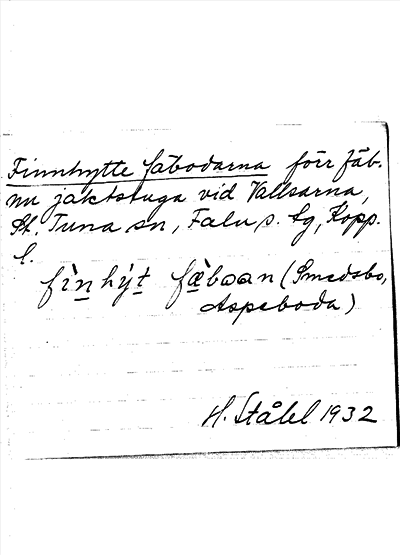 Finnhytte fäbodarna förr fäb.
nu jaktstuga vid Vallsarna,
St. Tuna sn, Falu s. tg, Kopp.
l.
fìn hy̍t fæ̀boan (Smedsbo,
Aspeboda)
H. Ståhl 1932